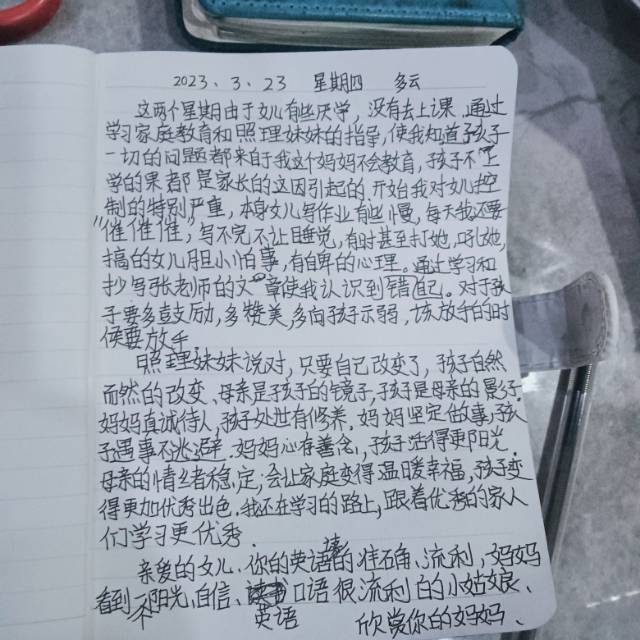 2023.3.23 星期四 多云
这两个星期由于女儿有些厌学,没有去上课,通过
学习家庭教育和照理妹妹的指导,使我知道孩子
一切的问题都来自于我这个妈妈不会教育,孩子不上
学的果都是家长的这因引起的,开始我对女儿控
制的特别严重,本身女儿写作业有些慢,每天我还要
"催催催",写不完不让睡觉,有时甚至打她,吼她,
搞的女儿胆小怕事,有自卑的心理。通过学习和
抄写张老师的文章使我认识到错自己。对于孩
子要多鼓励,多赞美,多向孩子示弱,该放手的时
候要放手,
照理妹妹说对,只要自己改变了,孩子自然
而然的改变、母亲是孩子的镜子,孩子是母亲的影子
妈妈真诚待人,孩子处世有修养,妈妈坚定做事,孩
子遇事不逃避,妈妈心存善念,孩子活得更阳光,
母亲的情绪稳定,会让家庭变得温暖幸福,孩子变
得更加优秀出色,我还在学习的路上,跟着优秀的家人
们学习更优秀,
亲爱的女儿、你的英语读的准确、流利,妈妈
看到不阳光、自信、口语很流利的小姑娘、
英语 欣赏你的妈妈、